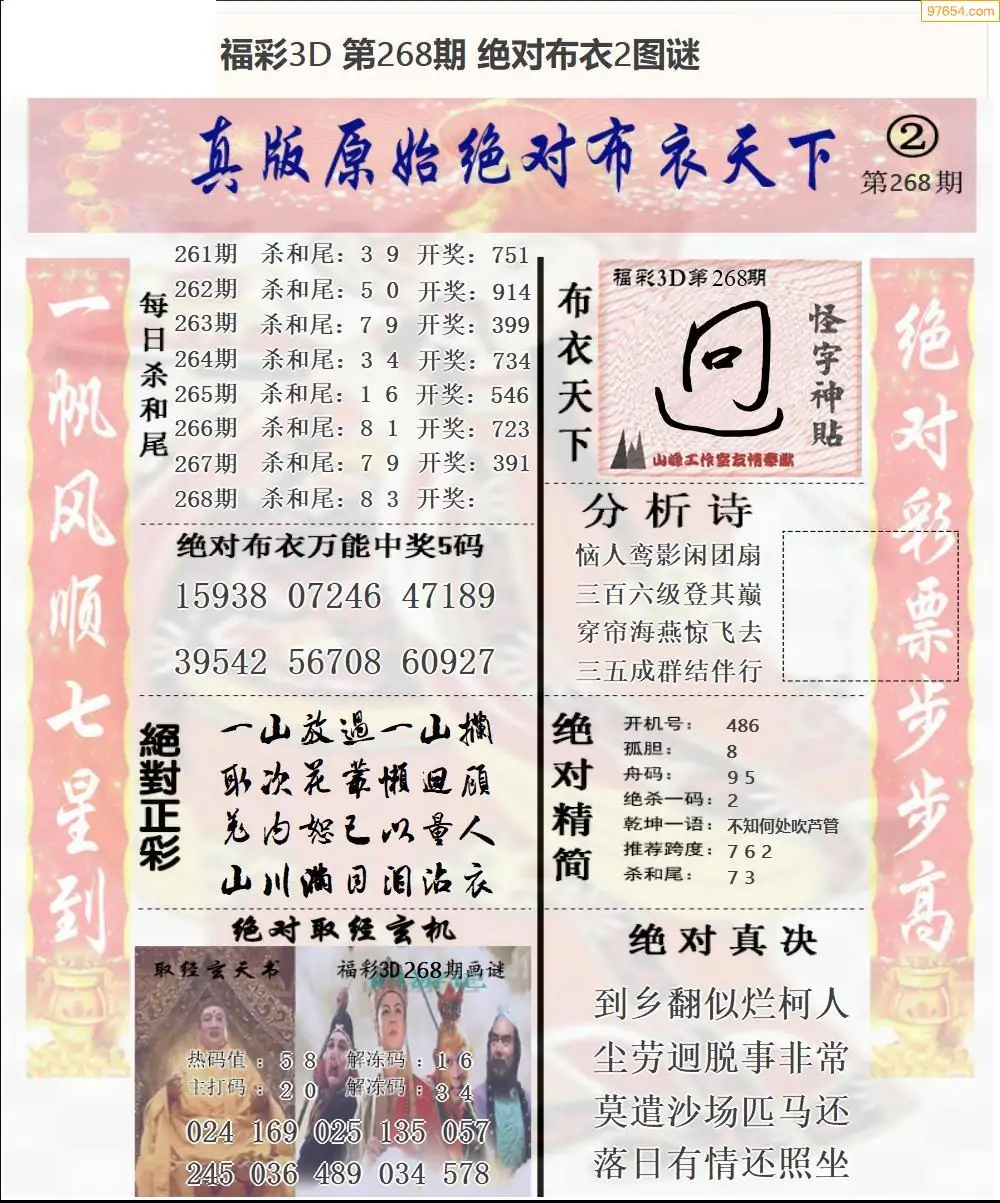 97654.com
福彩3D 第268期 绝对布衣2图谜
真版原始绝对布衣天下
②
第268期
一帆风顺七星到
每日杀和尾
261期 杀和尾：3 9 开奖：751
262期 杀和尾：5 0 开奖：914
263期 杀和尾：7 9 开奖：399
264期 杀和尾：3 4 开奖：734
265期 杀和尾：1 6 开奖：546
266期 杀和尾：8 1 开奖：723
267期 杀和尾：7 9 开奖：391
268期 杀和尾：8 3 开奖：
绝对布衣万能中奖5码
15938 07246 47189
39542 56708 60927
絕對正彩
一山放過一山攔
取次花叢懶迴顧
羌内恕己以量人
山川满目泪沾衣
绝对取经玄机
取经玄天书
福彩3D268期画谜
热码值：5 8 解冻码：1 6
主打码：2 0 解冻码：3 4
024 169 025 135 057
245 036 489 034 578
布衣天下
福彩3D第268期
回
怪字神貼
山峰工作室友情奉献
分析诗
恼人鸾影闲团扇
三百六级登其巅
穿帘海燕惊飞去
三五成群结伴行
绝对精简
开机号： 486
孤胆： 8
舟码： 9 5
绝杀一码：2
乾坤一语：不知何处吹芦管
推荐跨度：7 6 2
杀和尾： 7 3
绝对真决
到乡翻似烂柯人
尘劳迥脱事非常
莫遣沙场匹马还
落日有情还照坐
绝对彩票步步高